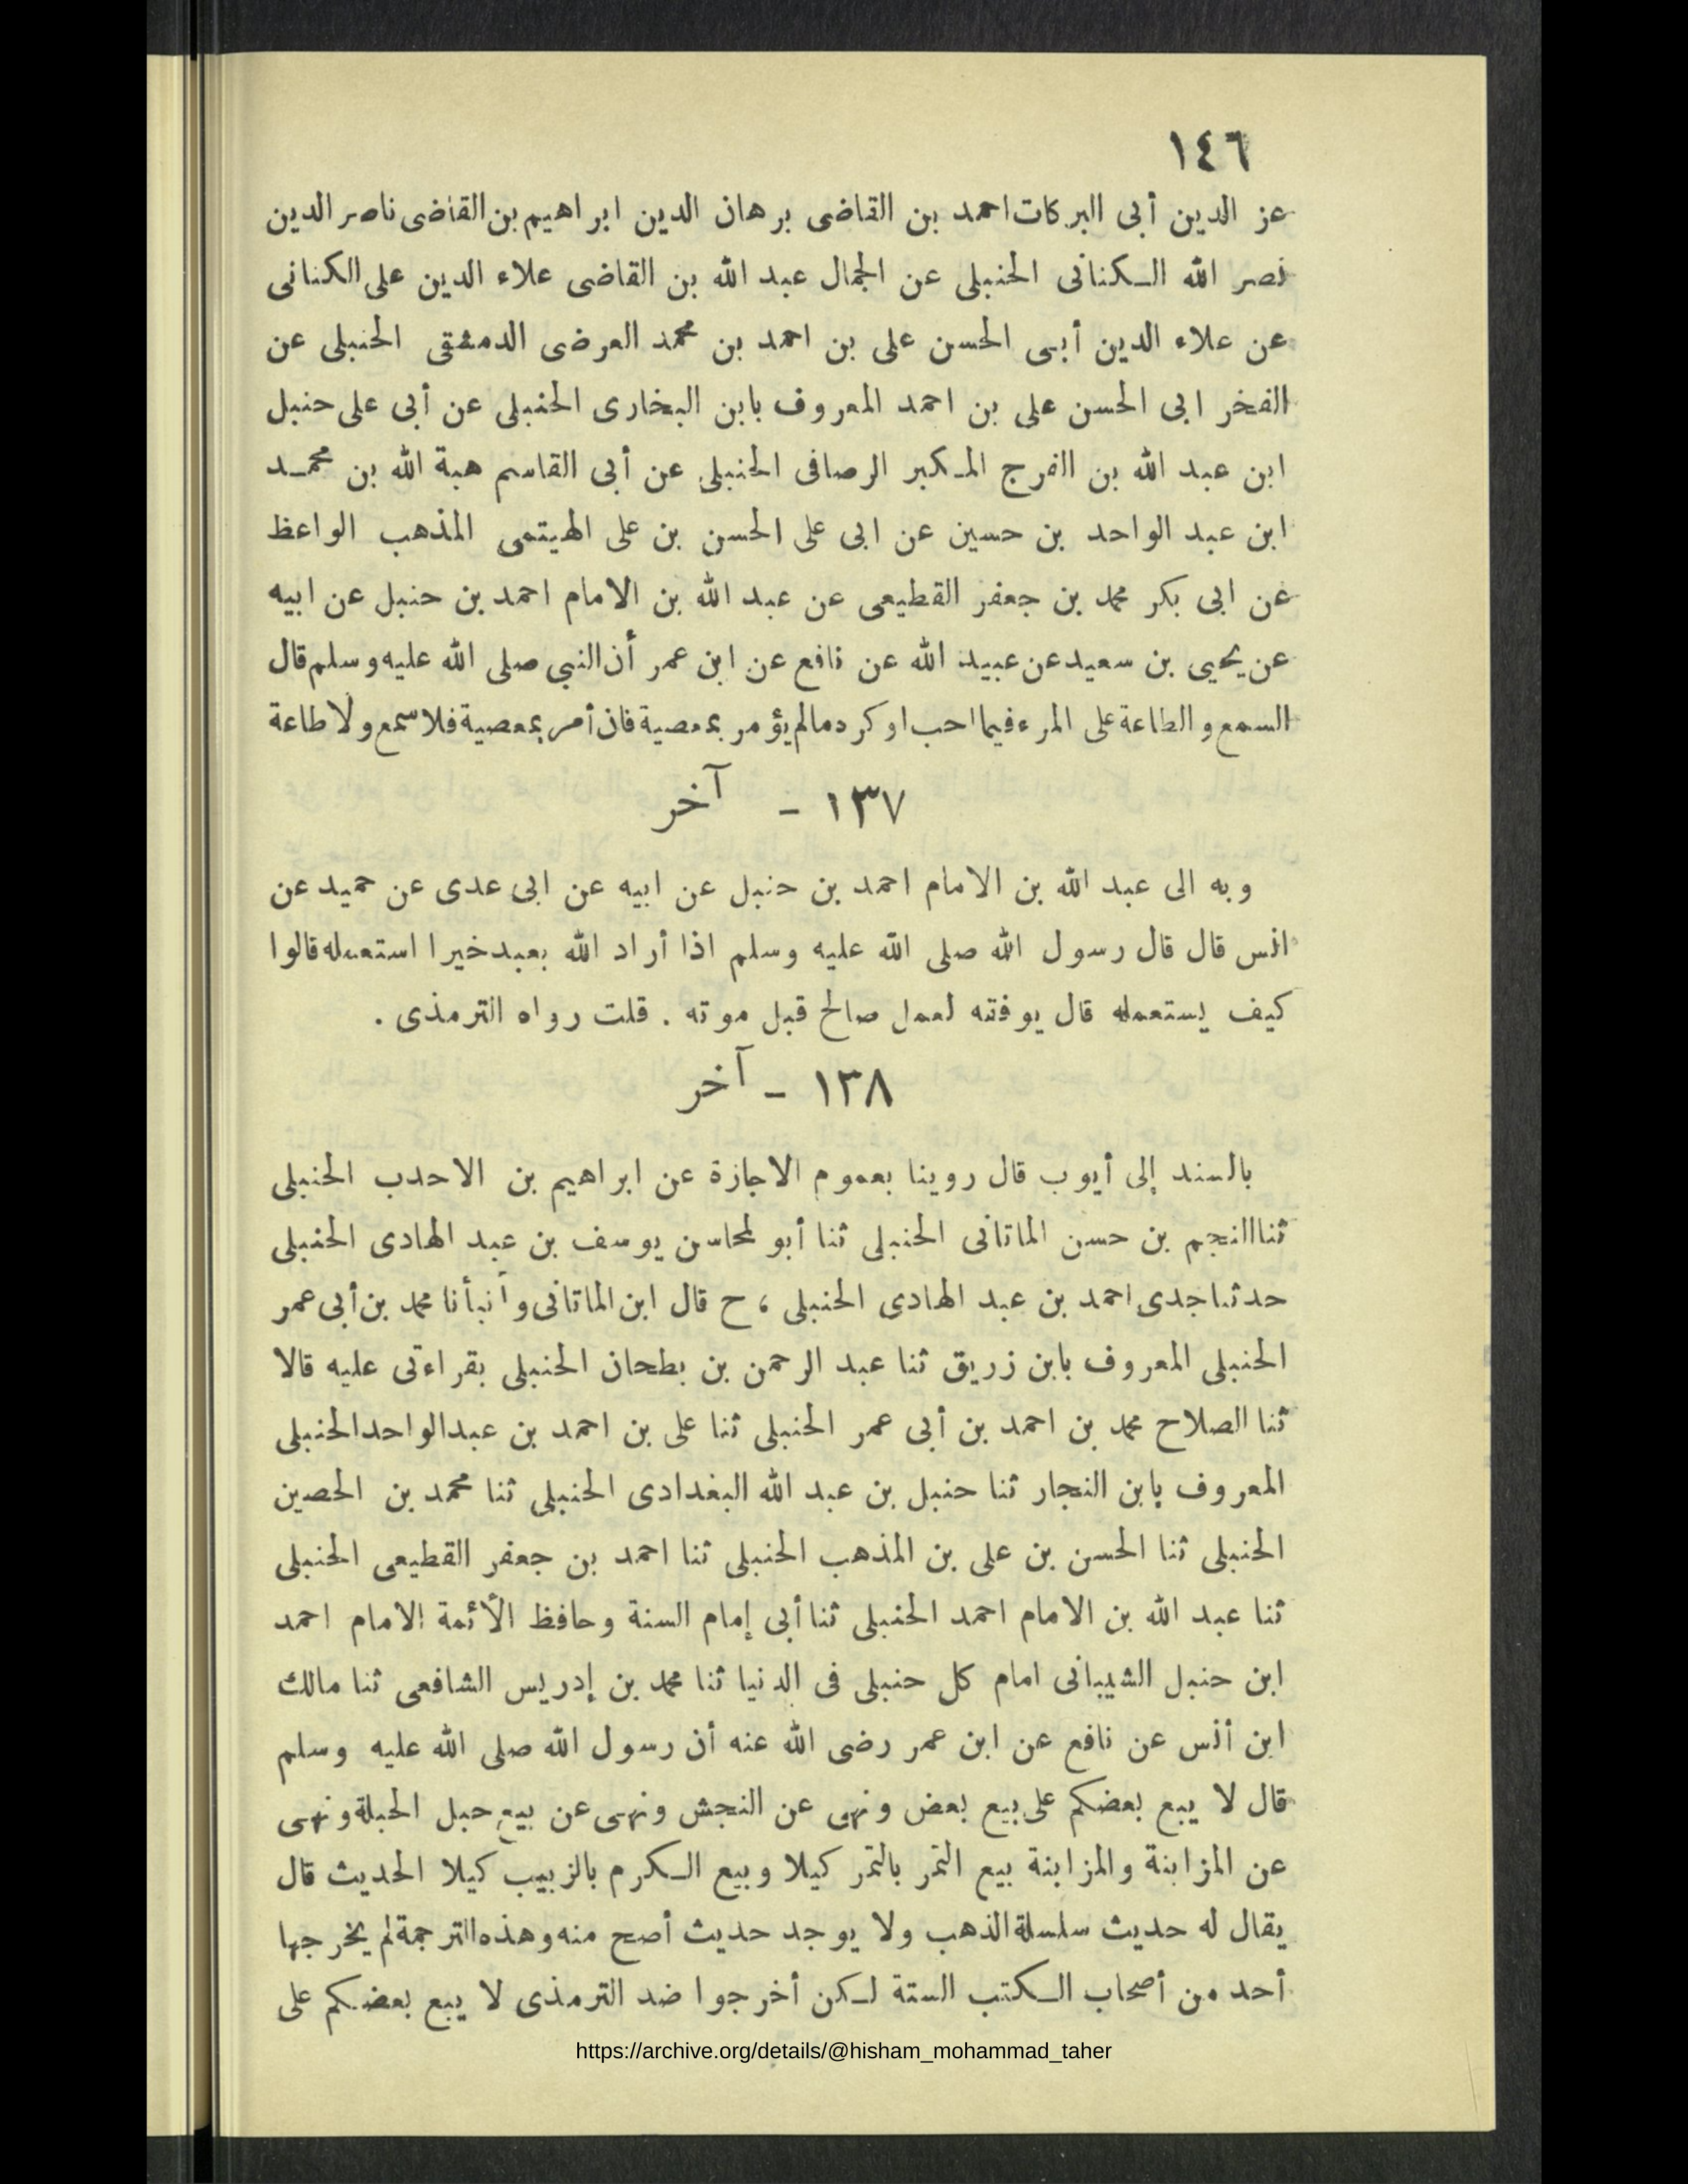 ١٤٦
عز الدين أبى البركات احمد بن القاضى برهان الدين ابراهيم بن القاضى ناصر الدين
نصر الله الكنانى الحنبلى عن الجمال عبد الله بن القاضى علاء الدين على الكنانى
عن علاء الدين أبى الحسن على بن احمد بن محمد العرضى الدمشقى الحنبلى عن
الفخر ابى الحسن على بن احمد المعروف بابن البخارى الحنبلى عن أبى على حنبل
ابن عبد الله بن الفرج المكبر الرصافى الحنبلى عن أبى القاسم هبة الله بن محمد
ابن عبد الواحد بن حسين عن ابى على الحسن بن على الهيتمى المذهب الواعظ
عن ابى بكر محمد بن جعفر القطيعى عن عبد الله بن الامام احمد بن حنبل عن ابيه
عن يحيى بن سعيد عن عبيد الله عن نافع عن ابن عمر أن النبي صلى الله عليه وسلم قال
السمع والطاعة على المرء فيما احب او كره مالم يؤمر بمعصية فان أمر بمعصية فلا سمع ولا طاعة
١٣٧ - آخر
وبه الى عبد الله بن الامام احمد بن حنبل عن ابيه عن ابى عدى عن حميد عن
انس قال قال رسول الله صلى الله عليه وسلم اذا أراد الله بعبد خيرا استعمله قالوا
كيف يستعمله قال يوفقه لعمل صالح قبل موته . قلت رواه الترمذى .
١٣٨ - آخر
بالسند إلى أيوب قال روينا بعموم الاجازة عن ابراهيم بن الاحدب الحنبلى
ثنا النجم بن حسن الماتانى الحنبلى ثنا أبو لمحاسن يوسف بن عبد الهادى الحنبلى
حدثنا جدى احمد بن عبد الهادى الحنبلى ، ح قال ابن الماتانى وأنبأنا محمد بن أبى عمر
الحنبلى المعروف بابن زريق ثنا عبد الرحمن بن بطحان الحنبلى بقراءتى عليه قالا
ثنا الصلاح محمد بن احمد بن أبى عمر الحنبلى ثنا على بن احمد بن عبد الواحد الحنبلى
المعروف بابن النجار ثنا حنبل بن عبد الله البغدادى الحنبلى ثنا محمد بن الحصين
الحنبلى ثنا الحسن بن على بن المذهب الحنبلى ثنا احمد بن جعفر القطيعى الحنبلى
ثنا عبد الله بن الامام احمد الحنبلى ثنا أبى إمام السنة وحافظ الأئمة الامام احمد
ابن حنبل الشيبانى امام كل حنبلى فى الدنيا ثنا محمد بن إدريس الشافعى ثنا مالك
ابن أنس عن نافع عن ابن عمر رضى الله عنه أن رسول الله صلى الله عليه وسلم
قال لا يبع بعضكم على بيع بعض ونهى عن النجش ونهى عن بيع حبل الحبلة ونهى
عن المزابنة والمزابنة بيع التمر بالتمر كيلا وبيع الكرم بالزبيب كيلا الحديث قال
يقال له حديث سلسلة الذهب ولا يوجد حديث أصح منه وهذه الترجمة لم يخرجها
أحد من أصحاب الكتب الستة لكن أخرجوا ضد الترمذى لا يبع بعضكم على
https://archive.org/details/@hisham_mohammad_taher